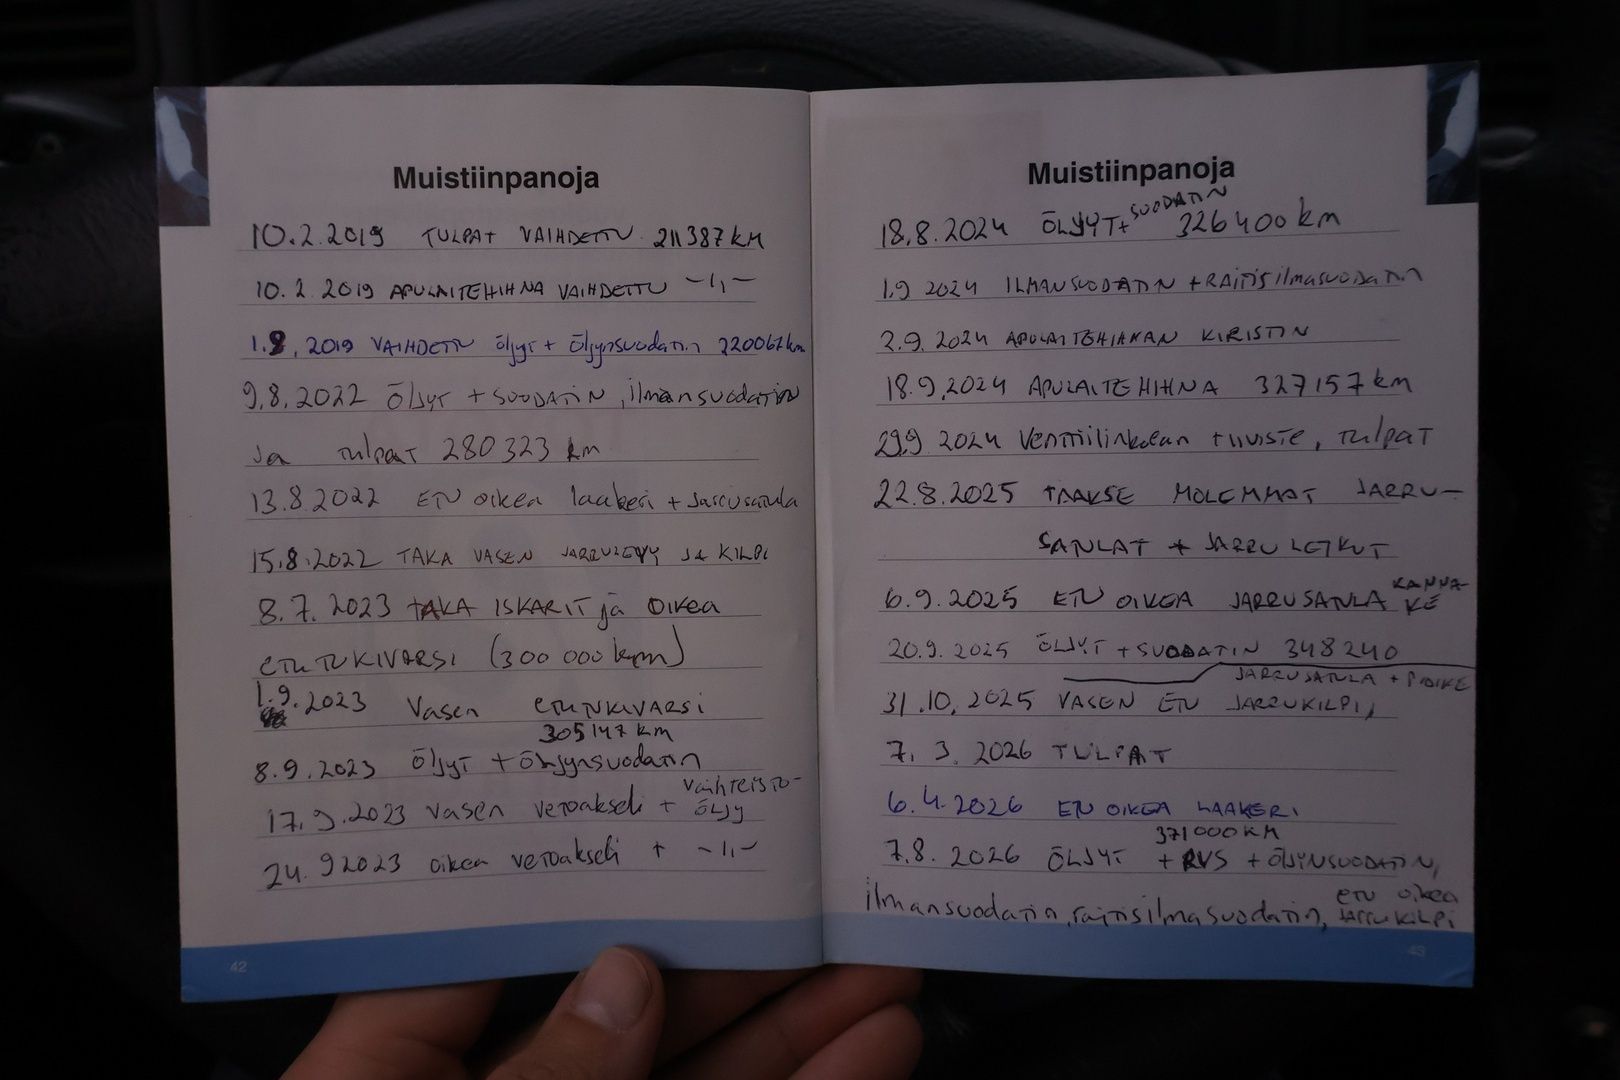 Muistiinpanoja
10.2.2019 TULPAT VAIHDETTU 211387 KM
10.2.2019 APULAITEHIHNA VAIHDETTU -11-
1.9.2019 VAIHDETTU öljyt + öljynsuodatin 220067 km
9.8.2022 ÖLJYT + SUODATIN, ilmansuodatin
ja tulpat 280323 km
13.8.2022 ETU OIKEA laakeri + jarrusatula
15.8.2022 TAKA VASEN JARRULEVY JA KILPI
8.7.2023 TAKA ISKARIT ja OIKEA
ETUTUKIVARSI (300 000 km)
1.9.2023 Vasen ETUTUKIVARSI
305147 KM
8.9.2023 öljyt + öljynsuodatin
17.9.2023 vasen vetoakseli + vaihteisto-
ÖLJY
24.9 2023 oikea vetoakseli + -11-
42
Muistiinpanoja
18.8.2024 ÖLJYT + SUODATIN 326400 km
1.9 2024 ILMANSUODATIN + RAITISilmasuodatin
2.9.2024 APULAITEHIHNAN KIRISTIN
18.9.2024 APULAITEHIHNA 327157 km
29.9 2024 Venttiilinkoean tiiviste, TULPAT
22.8.2025 TAAKSE MOLEMMAT JARRU-
SATULAT + JARRULETKUT
6.9.2025 ETU OIKEA JARRUSATULA KANNA-
KE
20.9.2025 ÖLJYT + SUODATIN 348240
JARRUSATULA + P
31.10.2025 VASEN ETU JARRUKILPI,
7.3.2026 TULPAT
6.4.2026 ETU OIKEA LAAKERI
371000 KM
7.8.2026 ÖLJYT + RVS + ÖLJYNSUODATIN,
ilmansuodatin, raitisilmasuodatin, ETU oikea
JARRUKILPI
43